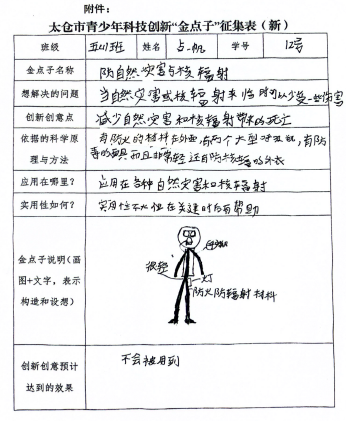 附件：
太仓市青少年科技创新“金点子”征集表（新）
班级 五(1)班 姓名 占帆 学号 12号
金点子名称 防自然灾害与核辐射
想解决的问题 当自然灾害或核辐射来临时可以少受一些伤害
创新创意点 减少自然灾害和核辐射带来的死亡
依据的科学原理与方法 有防火的材料在外面，有两个大型呼吸机，有防
毒面具而且非常轻还有防核辐射的外衣
应用在哪里？ 应用在各种自然灾害和核辐射
实用性如何？ 实用性不大但在关键时后有帮助
金点子说明（画
图+文字，表示
构造和设想）
很轻
灯
防火防辐射材料
创新创意预计
达到的效果
不会被用到